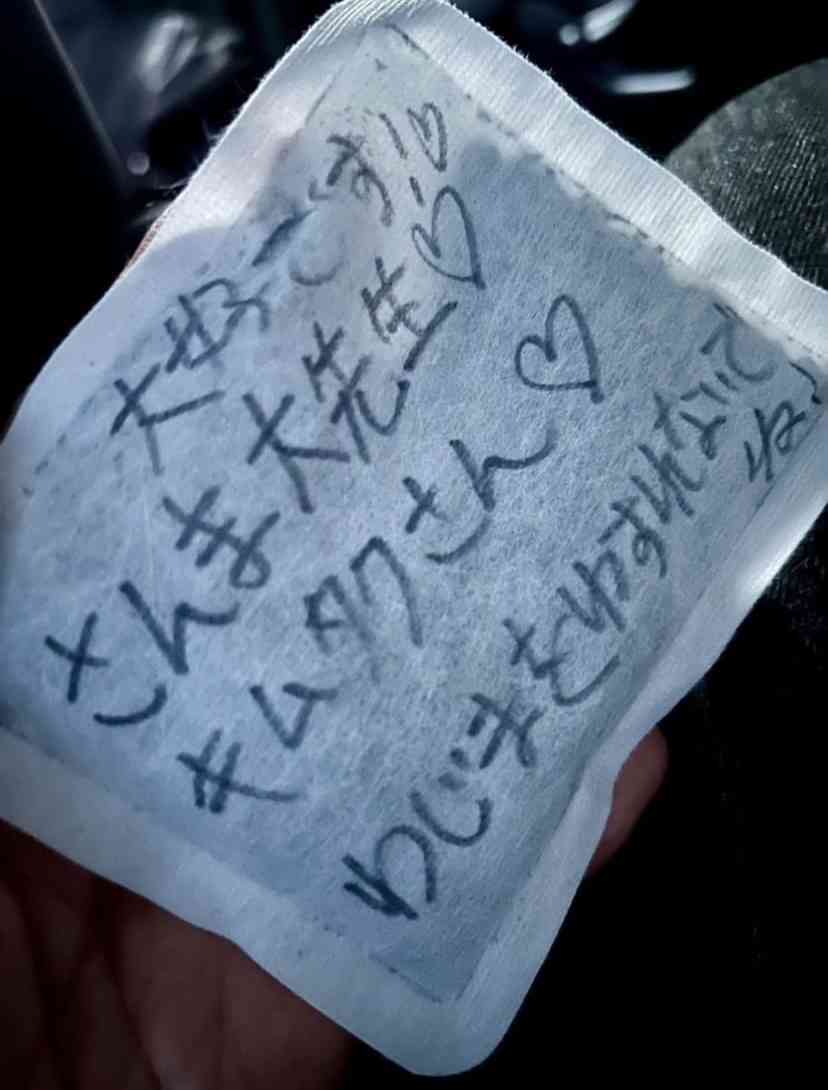 大好きです!♡
さんま大先生♡
キムタクさん♡
わじまをわすれないで
ね!